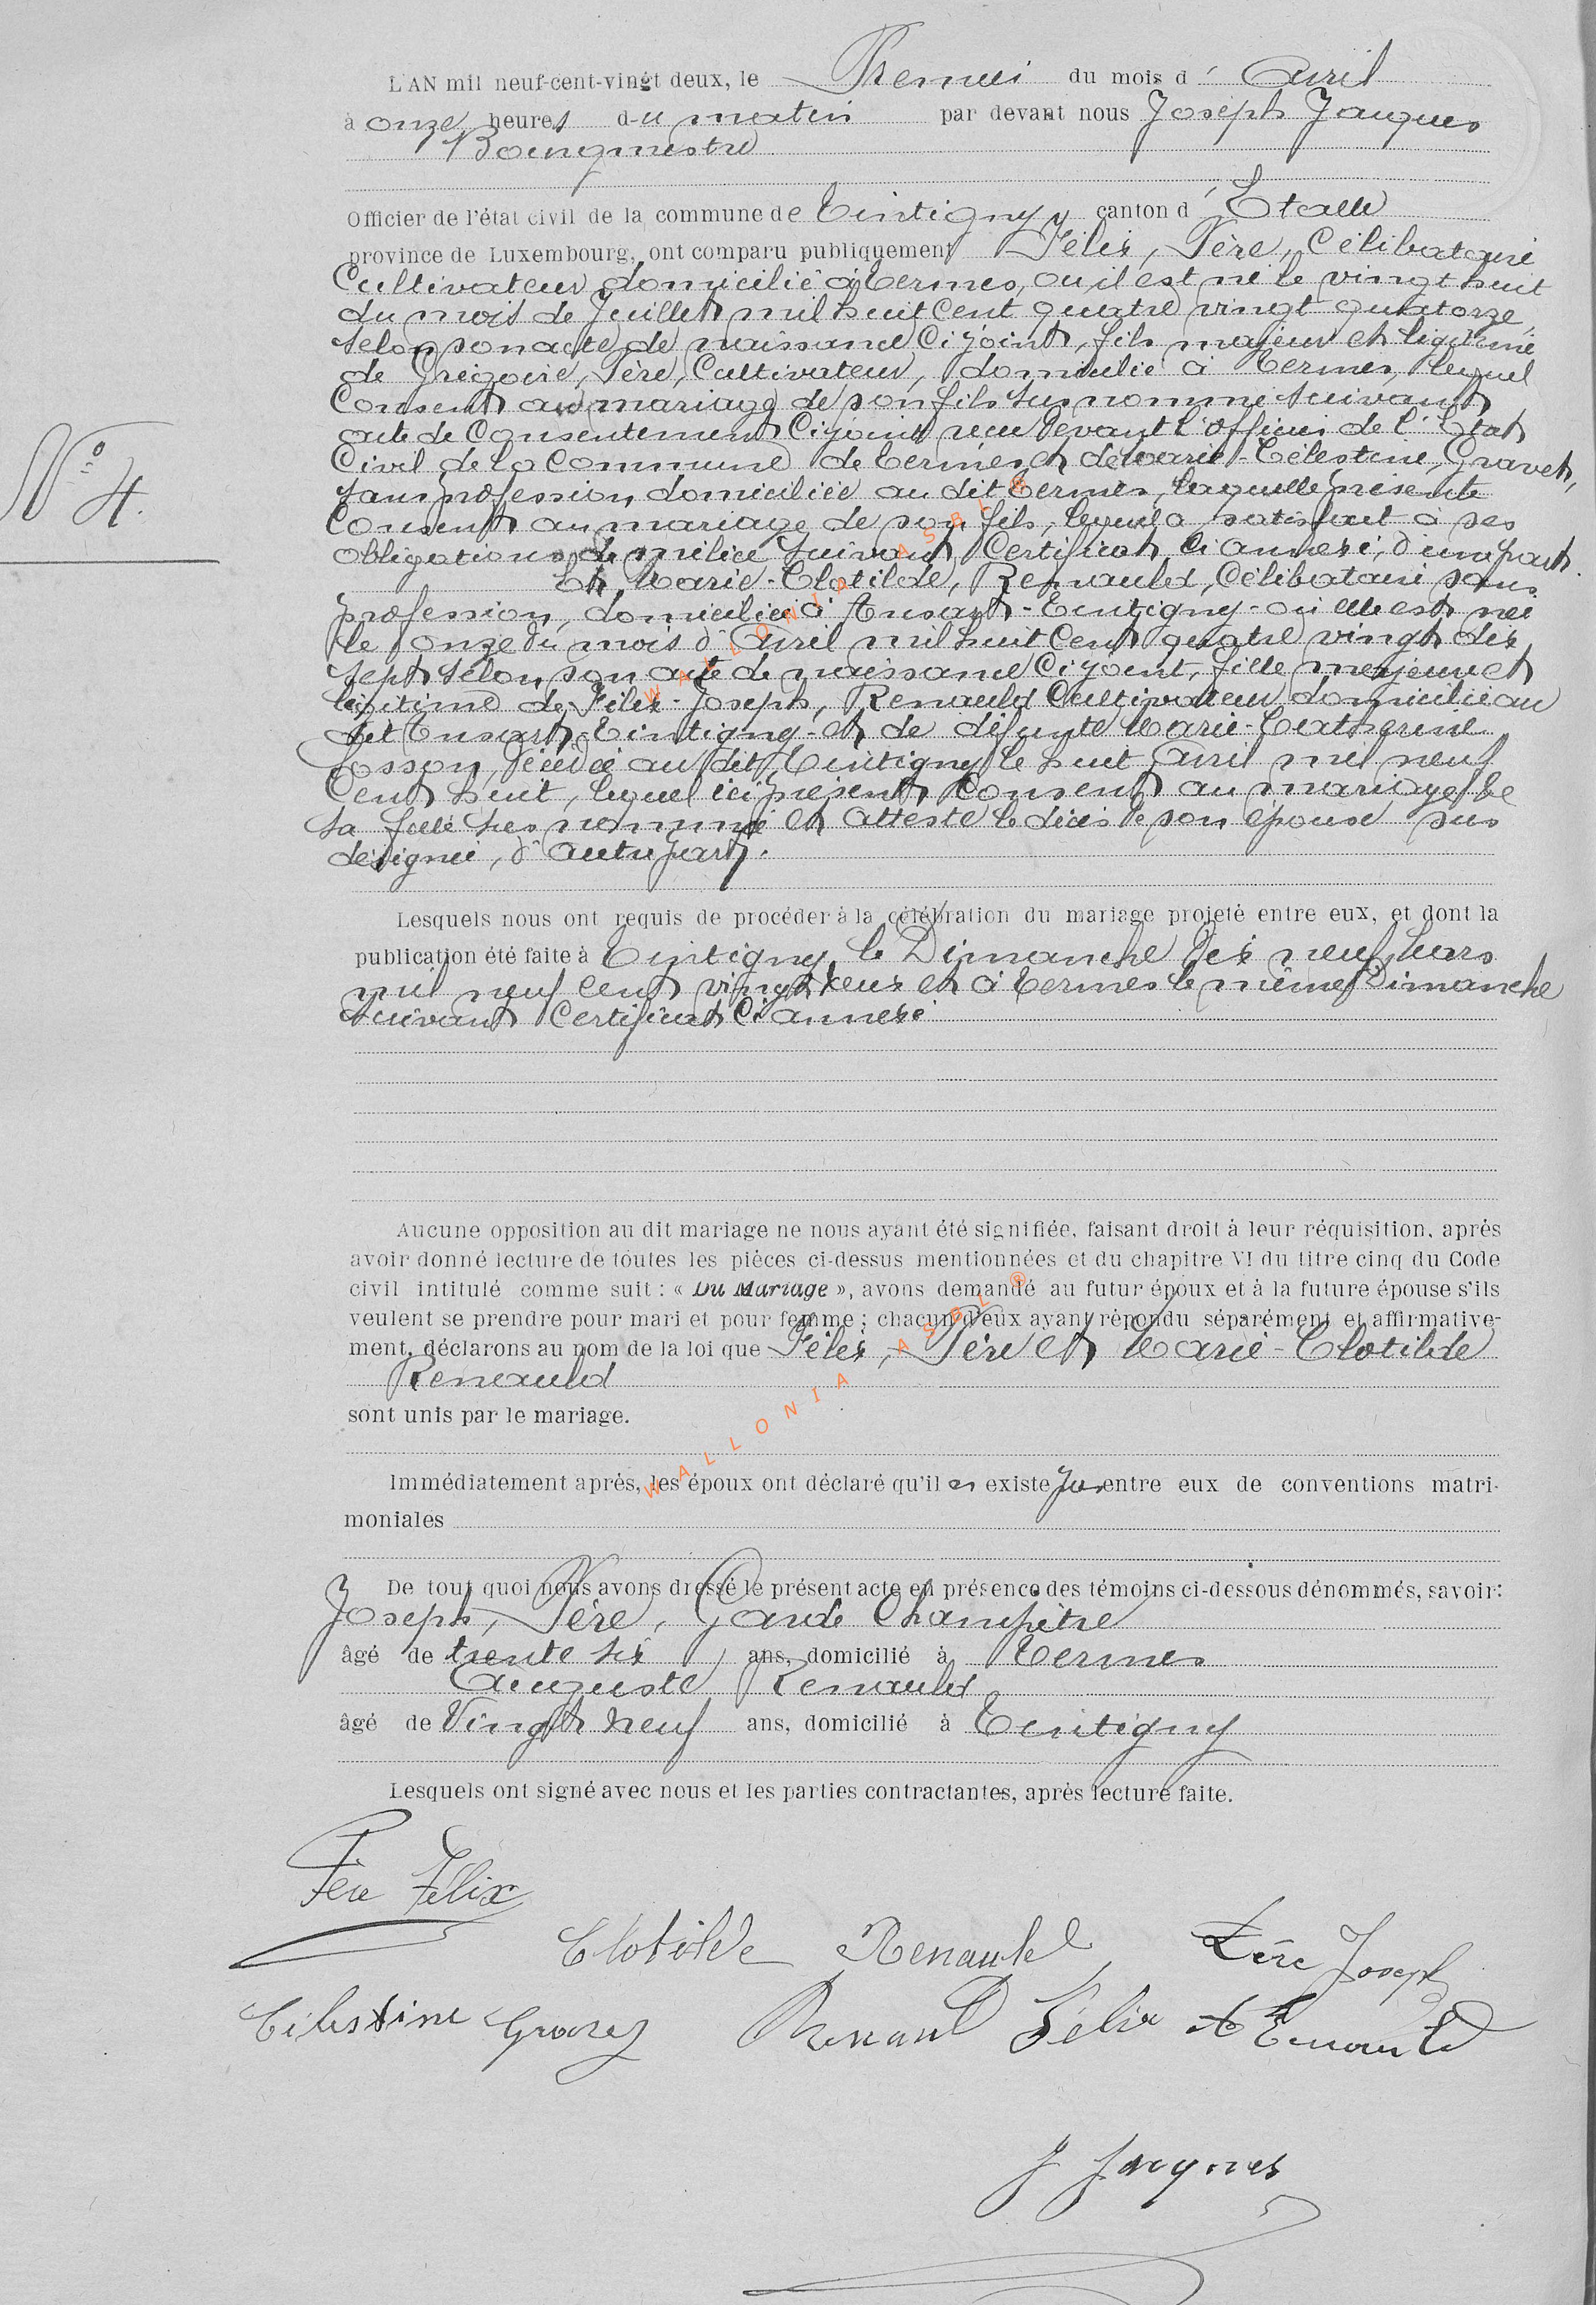 L'AN mil neuf-cent-vingt deux, le Premier du mois d' Avril
à onze heures du matin par devant nous Joseph Jacques
Bourgmestre
Officier de l'état civil de la commune de Tintigny, canton d' Etalle
province de Luxembourg, ont comparu publiquement Félix, Père, Célibataire
Cultivateur domicilié à Termes, où il est né le vingt huit
du mois de Juillet mil huit cent quatre vingt quatorze,
selon son acte de naissance ci joint, fils majeur et légitime
de Grégoire, Père, Cultivateur, domicilié à Termes, lequel
Consent au mariage de son fils sus nommé suivant
acte de Consentement ci joint reçu devant l'officier de l'Etat
Civil de la Commune de Termes et de Marie-Célestine, Gravet,
sans profession, domiciliée au dit Termes, laquelle présente
Consent au mariage de son fils, lequel a satisfait à ses
obligations de milice suivant Certificat Ci annexé, d'une part.
Et Marie-Clotilde, Renauld, Célibataire sans
profession, domiciliée à Ansart-Tintigny-où elle est née
le onze du mois d'Avril mil huit cent quatre vingt dix
sept selon son acte de naissance Ci joint, fille majeure et
légitime de Félix-Joseph, Renauld Cultivateur domicilié au
dit Ansart-Tintigny-et de défunte Marie-Catherine
Fosson, décédée au dit Tintigny le huit Avril mil neuf
Cent huit, lequel ici présent Consent au mariage de
sa fille sus nommée et atteste le décès de son épouse sus
désignée, d'autre part.
Lesquels nous ont requis de procéder à la célébration du mariage projeté entre eux, et dont la
publication été faite à Tintigny, le Dimanche dix neuf Mars
mil neuf cent vingt deux et à Termes le même Dimanche
suivant Certificat Ci annexé
Aucune opposition au dit mariage ne nous ayant été signifiée, faisant droit à leur réquisition, après
avoir donné lecture de toutes les pièces ci-dessus mentionnées et du chapitre VI du titre cinq du Code
civil intitulé comme suit : « Du Mariage », avons demandé au futur époux et à la future épouse s'ils
veulent se prendre pour mari et pour femme ; chacun d'eux ayant répondu séparément et affirmative-
ment, déclarons au nom de la loi que Félix, Père et Marie-Clotilde
Renauld
sont unis par le mariage.
Immédiatement après, les époux ont déclaré qu'il existe pas entre eux de conventions matri-
moniales
De tout quoi nous avons dressé le présent acte en présence des témoins ci-dessous dénommés, savoir :
Joseph, Père, Garde Champêtre
âgé de trente six ans, domicilié à Termes
Auguste Renauld
âgé de Vingt neuf ans, domicilié à Tintigny
Lesquels ont signé avec nous et les parties contractantes, après lecture faite.
Père Félix
Clotilde Renauld Père Joseph
Célestine Gravez Renauld Félix A Renauld
J Jacques
N° 4.
WALLONIA ASBL ®
WALLONIA ASBL ®